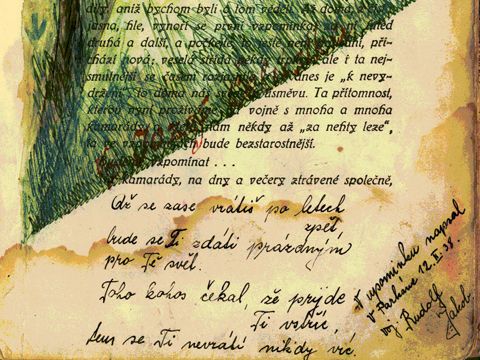 díly, aniž bychom byli o tom věděli. Až doma, z čista
jasna, hle, vynoří se první vzpomínka, za ní hned
druhá a další, a počkejte, to ještě není
chází nová; veselá střídá někdy ale i ta nej-
smutnější se časem dnes je „k nevy-
držení", to doma nás úsměvu. Ta přítomnost,
kterou nyní prožíváme na vojně s mnoha a mnoha
kamarády a která nám někdy až „za nehty leze",
ta ve vzpomínkách bude bezstarostnější.
Budeme vzpomínat . . .
kamarády, na dny a večery ztrávené společně,
Až se zase vrátíš po letech
zpět,
bude se Ti zdáti prázdným
pro Tě svět.
Toho kohos čekal, že přijde
Ti vstříc,
sem se Ti nevrátí nikdy víc.
V upomínku napsal
v 12. X. 38.
voj. Rudolf
Jakob.